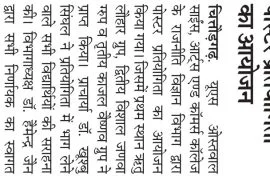 का आयोजन
चित्तौड़गढ़ यूएस ओस्तवाल
साइंस, आर्ट्स एण्ड कॉमर्स कॉलेज
के राजनीति विज्ञान विभाग द्वारा
पोस्टर प्रतियोगिता का आयोजन
किया गया जिसमें प्रथम स्थान ऋतु
लौहार ग्रुप, द्वितीय विशाल जणवा
ग्रुप व तृतीय काजल वैष्णव ग्रुप ने
प्राप्त किया। प्राचार्या डॉ. खुशबु
सिंघल ने प्रतियोगिता में भाग लेने
वाले सभी विद्यार्थियों की सराहना
की। विभागाध्यक्ष डॉ. हेमेन्द्र जैन
द्वारा सभी निर्णायक का स्वागत